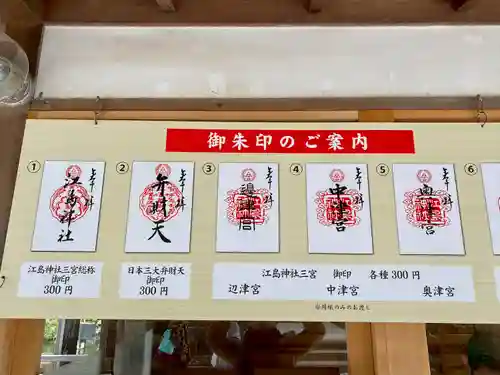 御朱印のご案内
① ② ③ ④ ⑤ ⑥
奉拝
江島神社
奉拝
弁財天
奉拝
辺津宮
奉拝
中津宮
奉拝
奥津宮
江島神社三宮総称
御印
300円
日本三大弁財天
御印
300円
江島神社三宮 御印 各種300円
辺津宮 中津宮 奥津宮